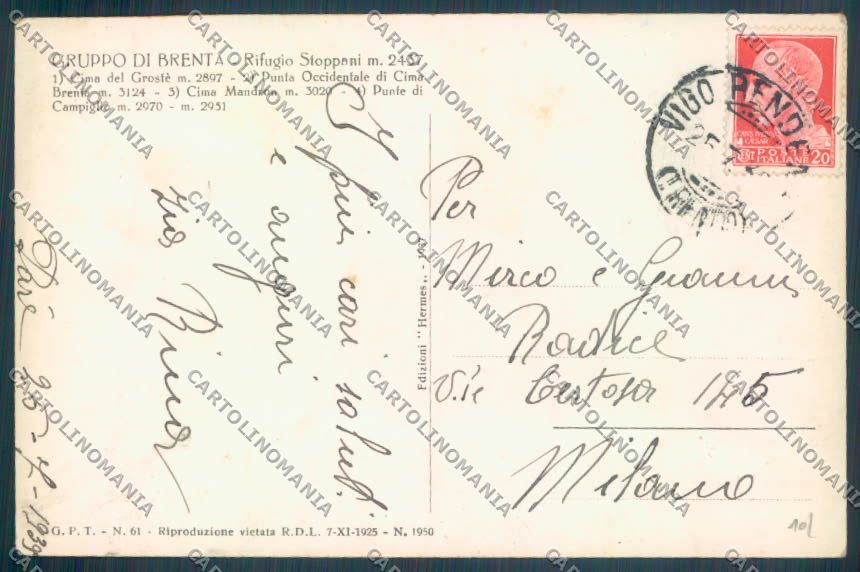 GRUPPO DI BRENTA - Rifugio Stoppani m. 2437
1) Cima del Grostè m. 2897 - 2) Punta Occidentale di Cima
Brenta m. 3124 - 3) Cima Mandron m. 3020 - 4) Punte di
Campiglio m. 2970 - m. 2951
I più cari saluti
e auguri
zia Rina
Darè 25-7-1939
Edizioni "Hermes"
G. P. T. - N. 61 - Riproduzione vietata R.D.L. 7-XI-1925 - N. 1950
VIGO RENDENA
(TRENTO)
POSTE
ITALIANE 20
CAESAR
Per
Mirco e Gianni
Radice
V.le Certosa 145
Milano
10/
CARTOLINOMANIA